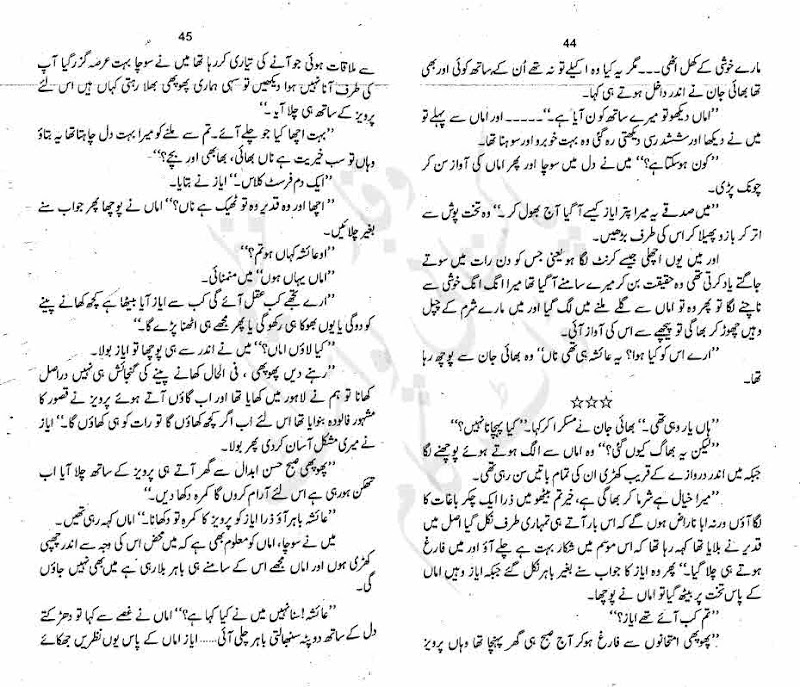 44
مارے خوشی کے کھل اٹھی۔۔۔ مگر یہ کیا وہ اکیلے تو نہ تھے اُن کے ساتھ کوئی اور بھی
تھا بھائی جان نے اندر داخل ہوتے ہی کہا۔
”اماں دیکھو تو میرے ساتھ کون آیا ہے۔“۔۔۔۔۔ اور اماں سے پہلے تو
میں نے دیکھا اور ششدر سی دیکھتی رہ گئی وہ بہت خوبرو اور سوہنا تھا۔
”کون ہوسکتا ہے؟“ میں نے دل میں سوچا اور پھر اماں کی آواز سن کر
چونک پڑی۔
”میں صدقے یہ میرا پتر ایاز کیسے آگیا آج بھول کر۔“ وہ تخت پوش سے
اتر کر بازو پھیلا کر اس کی طرف بڑھیں۔
اور میں یوں اچھلی جیسے کرنٹ لگا ہو یعنی جس کو دن رات میں سوتے
جاگتے یاد کرتی تھی وہ حقیقت بن کر میرے سامنے آگیا تھا میرا انگ انگ خوشی سے
ناچنے لگا تو پھر وہ تو اماں سے گلے ملنے میں لگ گیا اور میں مارے شرم کے چپل
وہیں چھوڑ کر بھاگی تو پیچھے سے اس کی آواز آئی۔
”ارے اس کو کیا ہوا؟ یہ عائشہ ہی تھی ناں“ وہ بھائی جان سے پوچھ رہا
تھا۔
☆☆☆
”ہاں یار وہی تھی۔“ بھائی جان نے مسکرا کر کہا۔ ”کیا پہچانا نہیں؟“
”لیکن یہ بھاگ کیوں گئی؟“ وہ اماں سے الگ ہوتے ہوئے پوچھنے لگا
جبکہ میں اندر دروازے کے قریب کھڑی ان کی تمام باتیں سن رہی تھی۔
”میرا خیال ہے شرما کر بھاگی ہے، خیر تم بیٹھو میں ذرا ایک چکر باغات کا
لگا آؤں ورنہ ابا ناراض ہوں گے کہ اس بار آتے ہی تمہاری طرف نکل گیا اصل میں
قدیر نے بلایا تھا کہہ رہا تھا کہ اس موسم میں شکار بہت ہے چلے آؤ اور میں فارغ
ہوتے ہی چلا گیا۔“ پھر وہ ایاز کا جواب سنے بغیر باہر نکل گئے جبکہ ایاز وہیں اماں
کے پاس تخت پر بیٹھ گیا تو اماں نے پوچھا۔
”تم کب آئے تھے ایاز؟“
”پھوپھی امتحانوں سے فارغ ہوکر آج صبح ہی گھر پہنچا تھا وہاں پرویز
45
سے ملاقات ہوئی جو آنے کی تیاری کر رہا تھا میں نے سوچا بہت عرصہ گزر گیا آپ
کی طرف آنا نہیں ہوا دیکھیں تو سہی ہماری پھوپھی بھلا رہتی کہاں ہیں اس لئے
پرویز کے ساتھ ہی چلا آیا۔“
”بہت اچھا کیا جو چلے آئے۔ تم سے ملنے کو میرا بہت دل چاہتا تھا یہ بتاؤ
وہاں تو سب خیریت ہے ناں بھائی، بھابھی اور بچے؟“
”ایک دم فرسٹ کلاس۔“ ایاز نے بتایا۔
”اچھا اور وہ قدیر وہ تو ٹھیک ہے ناں؟“ اماں نے پوچھا پھر جواب سنے
بغیر چلائیں۔
”او عائشہ کہاں ہو تم؟“
”اماں یہاں ہوں“ میں منمنائی۔
”ارے تجھے کب عقل آئے گی کب سے ایاز آیا بیٹھا ہے کچھ کھانے پینے
کو دو گی یا یوں بھوکا ہی رکھو گی یا پھر مجھے ہی اٹھنا پڑے گا۔“
”کیا لاؤں اماں؟“ میں نے اندر سے ہی پوچھا تو ایاز بولا۔
”رہنے دیں پھوپھی، فی الحال کھانے پینے کی گنجائش ہی نہیں دراصل
کھانا تو ہم نے لاہور میں کھایا تھا اور اب گاؤں آتے ہوئے پرویز نے قصور کا
مشہور فالودہ بنوایا تھا اس لئے اب اگر کچھ کھاؤں گا تو رات کو ہی کھاؤں گا۔“ ایاز
نے میری مشکل آسان کردی پھر بولا۔
”پھوپھی صبح حسن ابدال سے گھر آتے ہی پرویز کے ساتھ چلا آیا اب
تھکن ہورہی ہے اس لئے آرام کروں گا کمرہ دکھا دیں۔“
”عائشہ باہر آؤ ذرا ایاز کو پرویز کا کمرہ تو دکھانا۔“ اماں کہہ رہی تھیں۔
میں نے سوچا، اماں کو معلوم بھی ہے کہ میں محض اس کی وجہ سے اندر چھپی
کھڑی ہوں اور اماں مجھے اس کے سامنے ہی باہر بلا رہی ہے میں بھی نہیں جاؤں
گی۔
”عائشہ! سنا نہیں میں نے کیا کہا ہے؟“ اماں نے غصے سے کہا تو دھڑکتے
دل کے ساتھ دوپٹہ سنبھالتی باہر چلی آئی..... ایاز اماں کے پاس یوں نظریں جھکائے